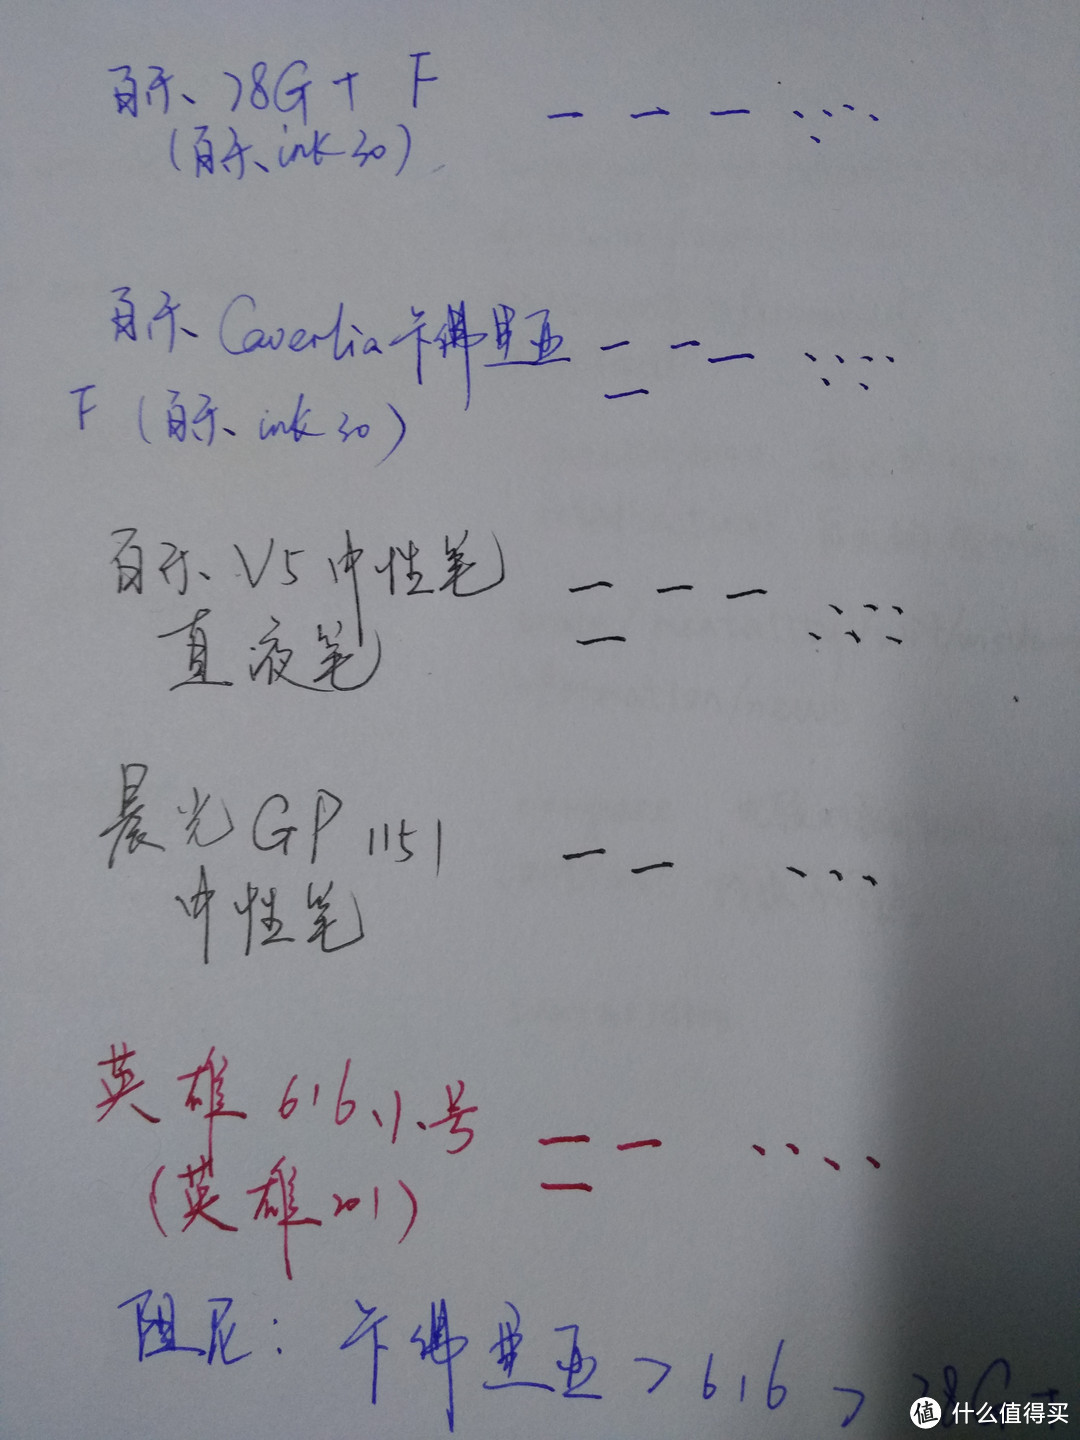 百乐 78G+ F
(百乐 ink 30)
百乐 Caverlia卡佛里亚
F (百乐 ink 30)
百乐 V5中性笔
直液笔
晨光GP1151
中性笔
英雄 616小号
(英雄 201)
阻尼: 卡佛里亚 > 616 > 78G+
值 什么值得买